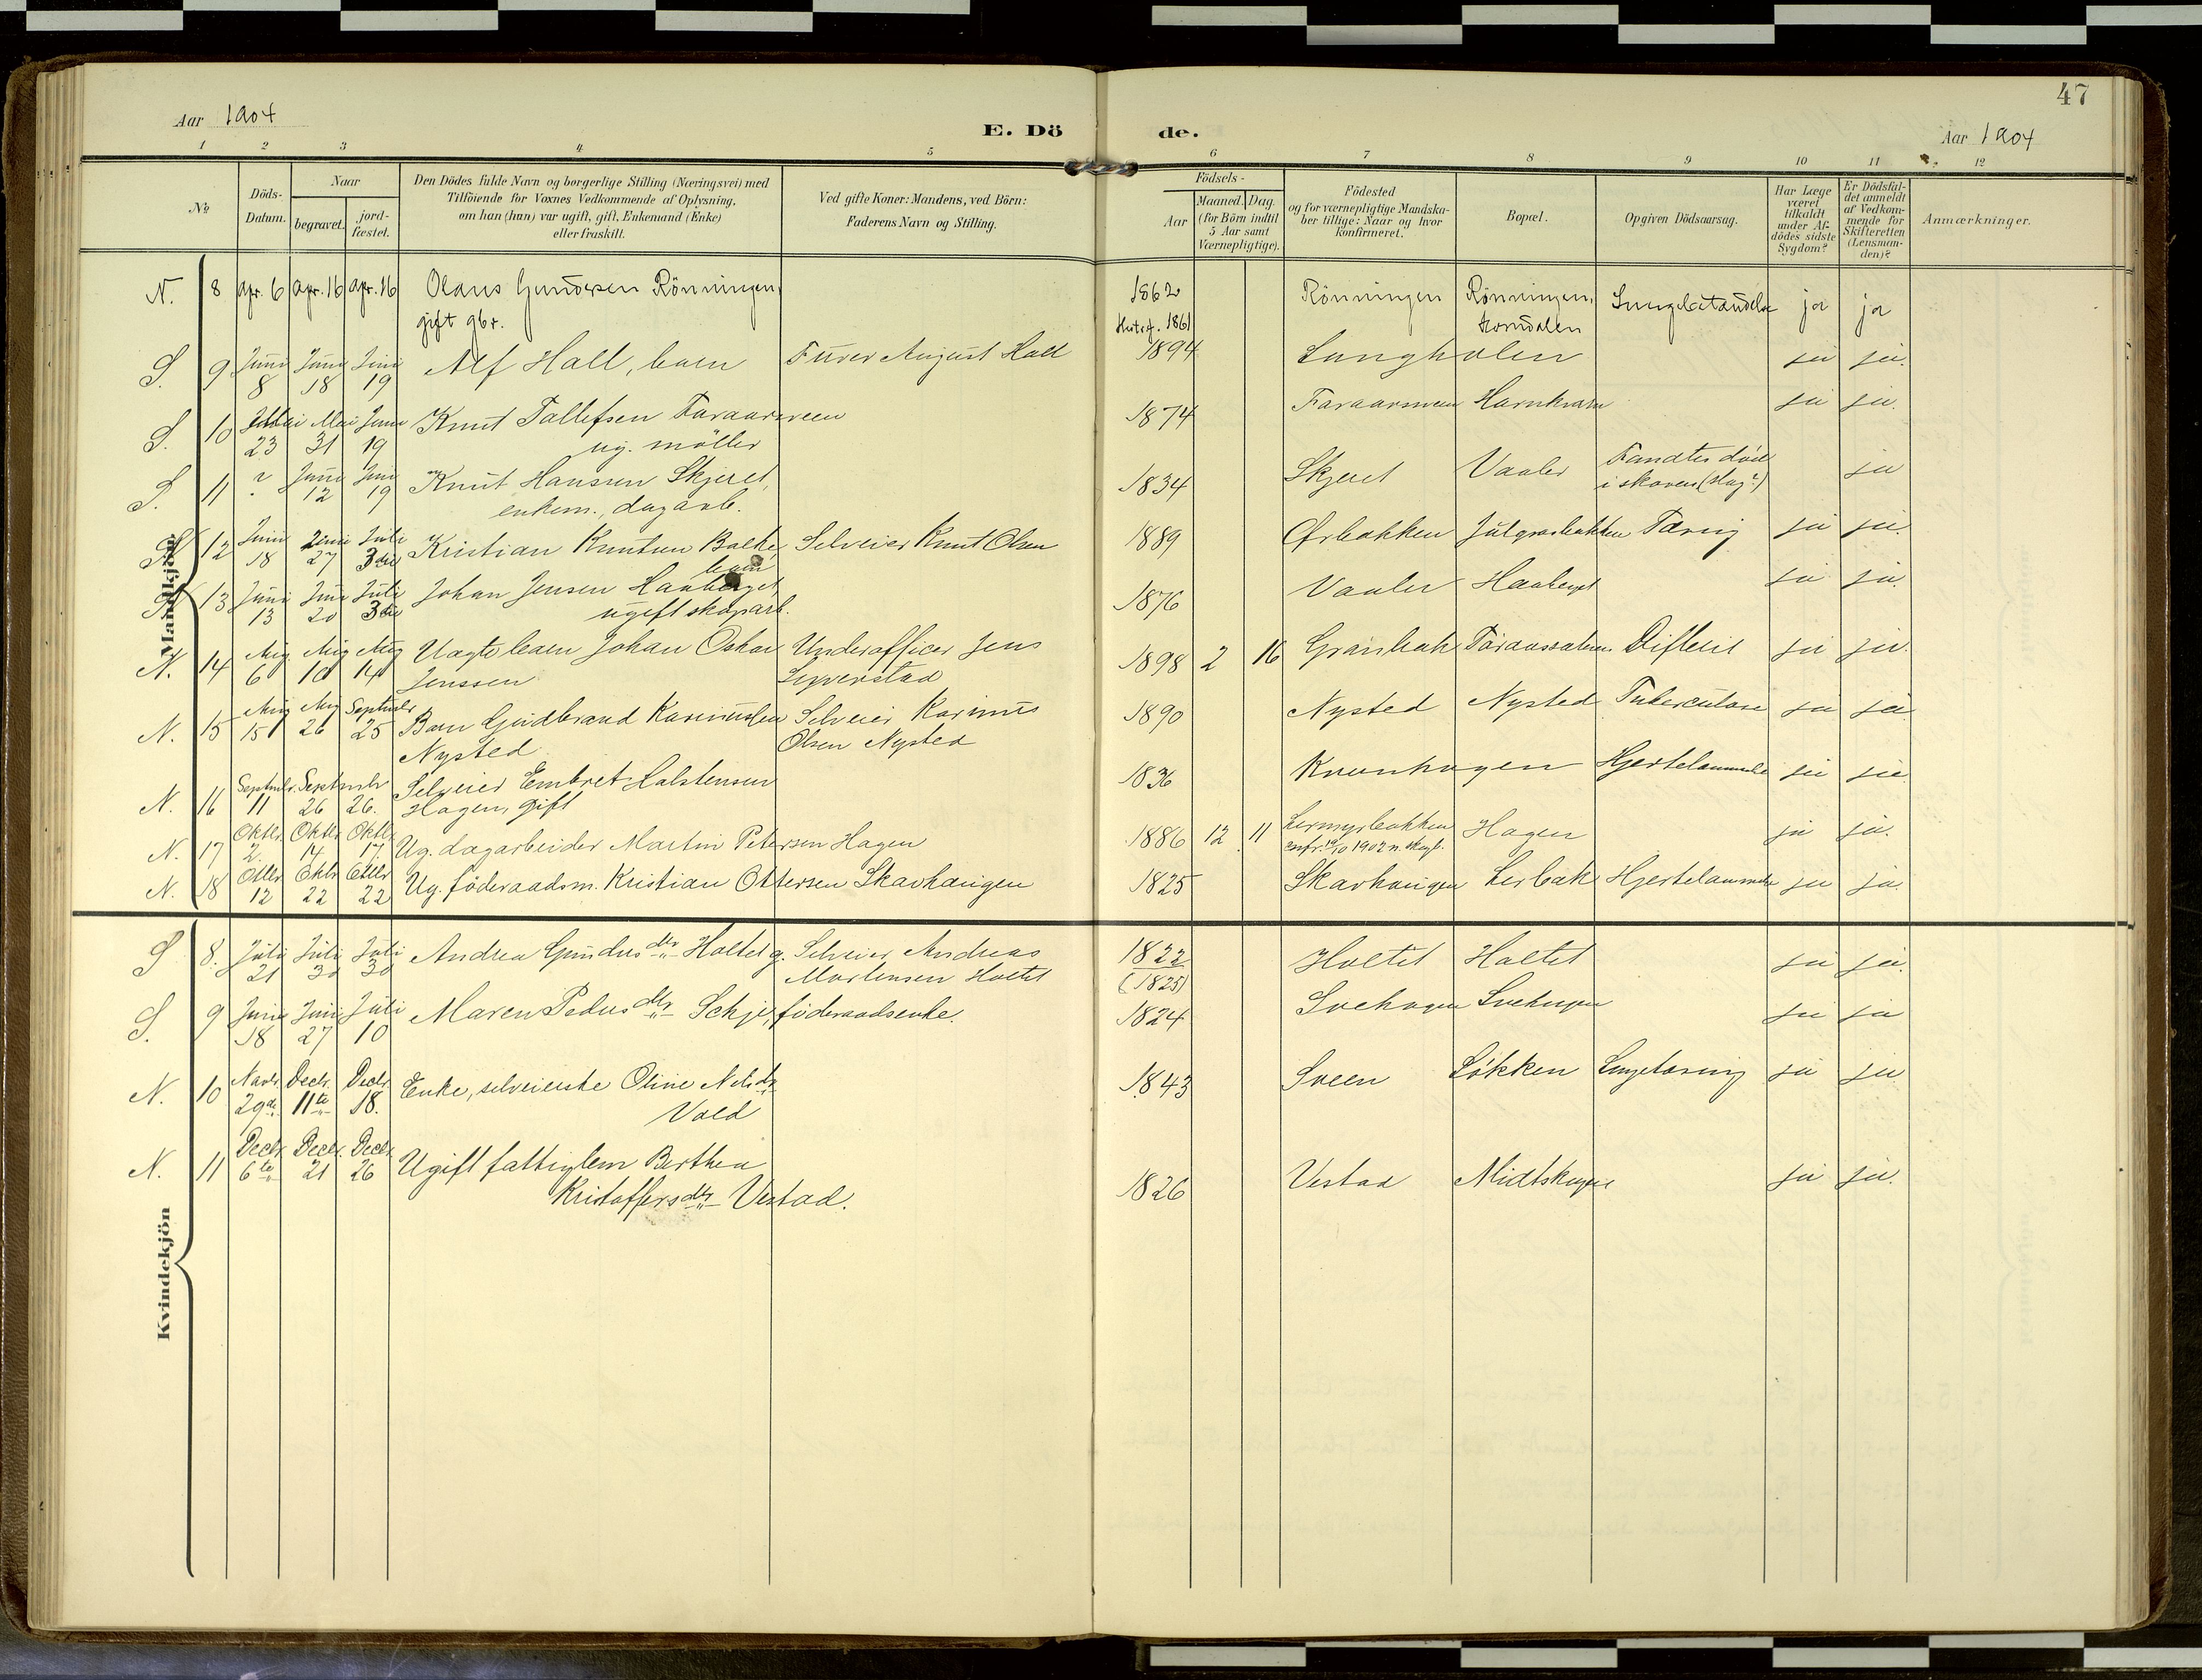 47
Aar 1904
E. Döde.
Aar 1904
1 2 3 4 5 6 7 8 9 10 11 12
No
Döds-Datum.
Naar
begravet.
jord-fæstet.
Den Dödes fulde Navn og borgerlige Stilling (Næringsvei) med
Tilföiende for Voxnes Vedkommende af Oplysning,
om han (hun) var ugift, gift, Enkemand (Enke)
eller fraskilt.
Ved gifte Koner: Mandens, ved Börn:
Faderens Navn og Stilling.
Födsels-
Aar
Maaned. Dag.
(for Börn indtil
5 Aar samt
Værnepligtige).
Födested
og for værnepligtige Mandska-
ber tillige: Naar og hvor
konfirmeret.
Bopæl.
Opgiven Dödsaarsag.
Har Læge
været
tilkaldt
under Af-
dödes sidste
Sygdom?
Er Dödsfal-
det anmeldt
af Vedkom-
mende for
Skifteretten
(Lensman-
den)?
Anmærkninger.
Mandkjön
N. 8 Apr. 6 Apr. 16 Apr. 16 Olaus Gundersen Rönningen, 1862 Rönningen Rönningen, Lungebetændelse ja ja
gift gbr. 1861
S. 9 Juni 8 Juni 18 Juni 19 Alf Hall, barn Furer August Hall 1894 Lungholen ja ja.
S. 10 Mai 23 Mai 31 Juni 19 Knut Tallefsen 1874 ja ja.
ug. möller
S. 11 ? Juni 12 Juni 19 Knut Hansen Skjeret, 1834 Skjeret Vaaler Fandtes död ja
enkem., dagarb. i skoven (slag?)
12 Juni 18 Juni 27 Juli 3die Kristian Knutsen Balke, Selveier Knut Olsen 1889 Ørbakken Julgrasbakken Tæring ja ja.
barn
13 Juni 13 Juni 20 Juli 3die Johan Jensen Haaberget, 1876 Vaaler Haaberget ja ja.
ugift skogarb.
N. 14 Aug 6 Aug 10 Aug 14 Uægte barn Johan Oskar Underofficer Jens 1898 2 16 Granbak Difterit ja ja.
Jenssen
N. 15 Aug 15 Aug 26 Septmbr 25 Barn Gudbrand Karinusen Selveier Karinus 1890 Nysted Nysted Tuberculose ja ja
Nysted Olsen Nysted
N. 16 Septmbr. 11 Septmbr 26 26. Selveier Embret Halstensen 1836 Kvernhagen Hjertelammelse ja ja
Hagen, gift
N. 17 Oktbr. 2. Oktbr 14 Oktbr 17. Ug. dagarbeider Martin Petersen Hagen 1886 12 11 Lermyrbakken Hagen ja ja.
N. 18 Oktbr 12 Oktbr 22 Oktbr 22 Ug. föderaadsm. Kristian Ottersen Skavhaugen 1825 Skavhaugen Lerbak Hjertelammelse ja ja.
Kvindekjön
S 8. Juli 21 Juli 30 Juli 30 Andrea Gundersdtr Holtet g. Selveier Andreas 1822 Holtet Holtet ja ja.
Martensen Holtet (1825)
S. 9 Juni 18 Juni 27 Juli 10 Maren Pedersdtr föderaadsenke. 1824 Svehagen Svehagen ja ja
N. 10 Novbr. 29de Decbr. 11te Decbr. 18. Enke, selveierske Oline Nilsdtr 1843 Sveen Løkken Lungetæring ja ja
Vold
N. 11 Decbr 6te Decbr. 21 Decbr 26 Ugift fattiglem Berthea 1826 Vestad Midtskogen ja ja.
Kristoffersdtr Vestad.